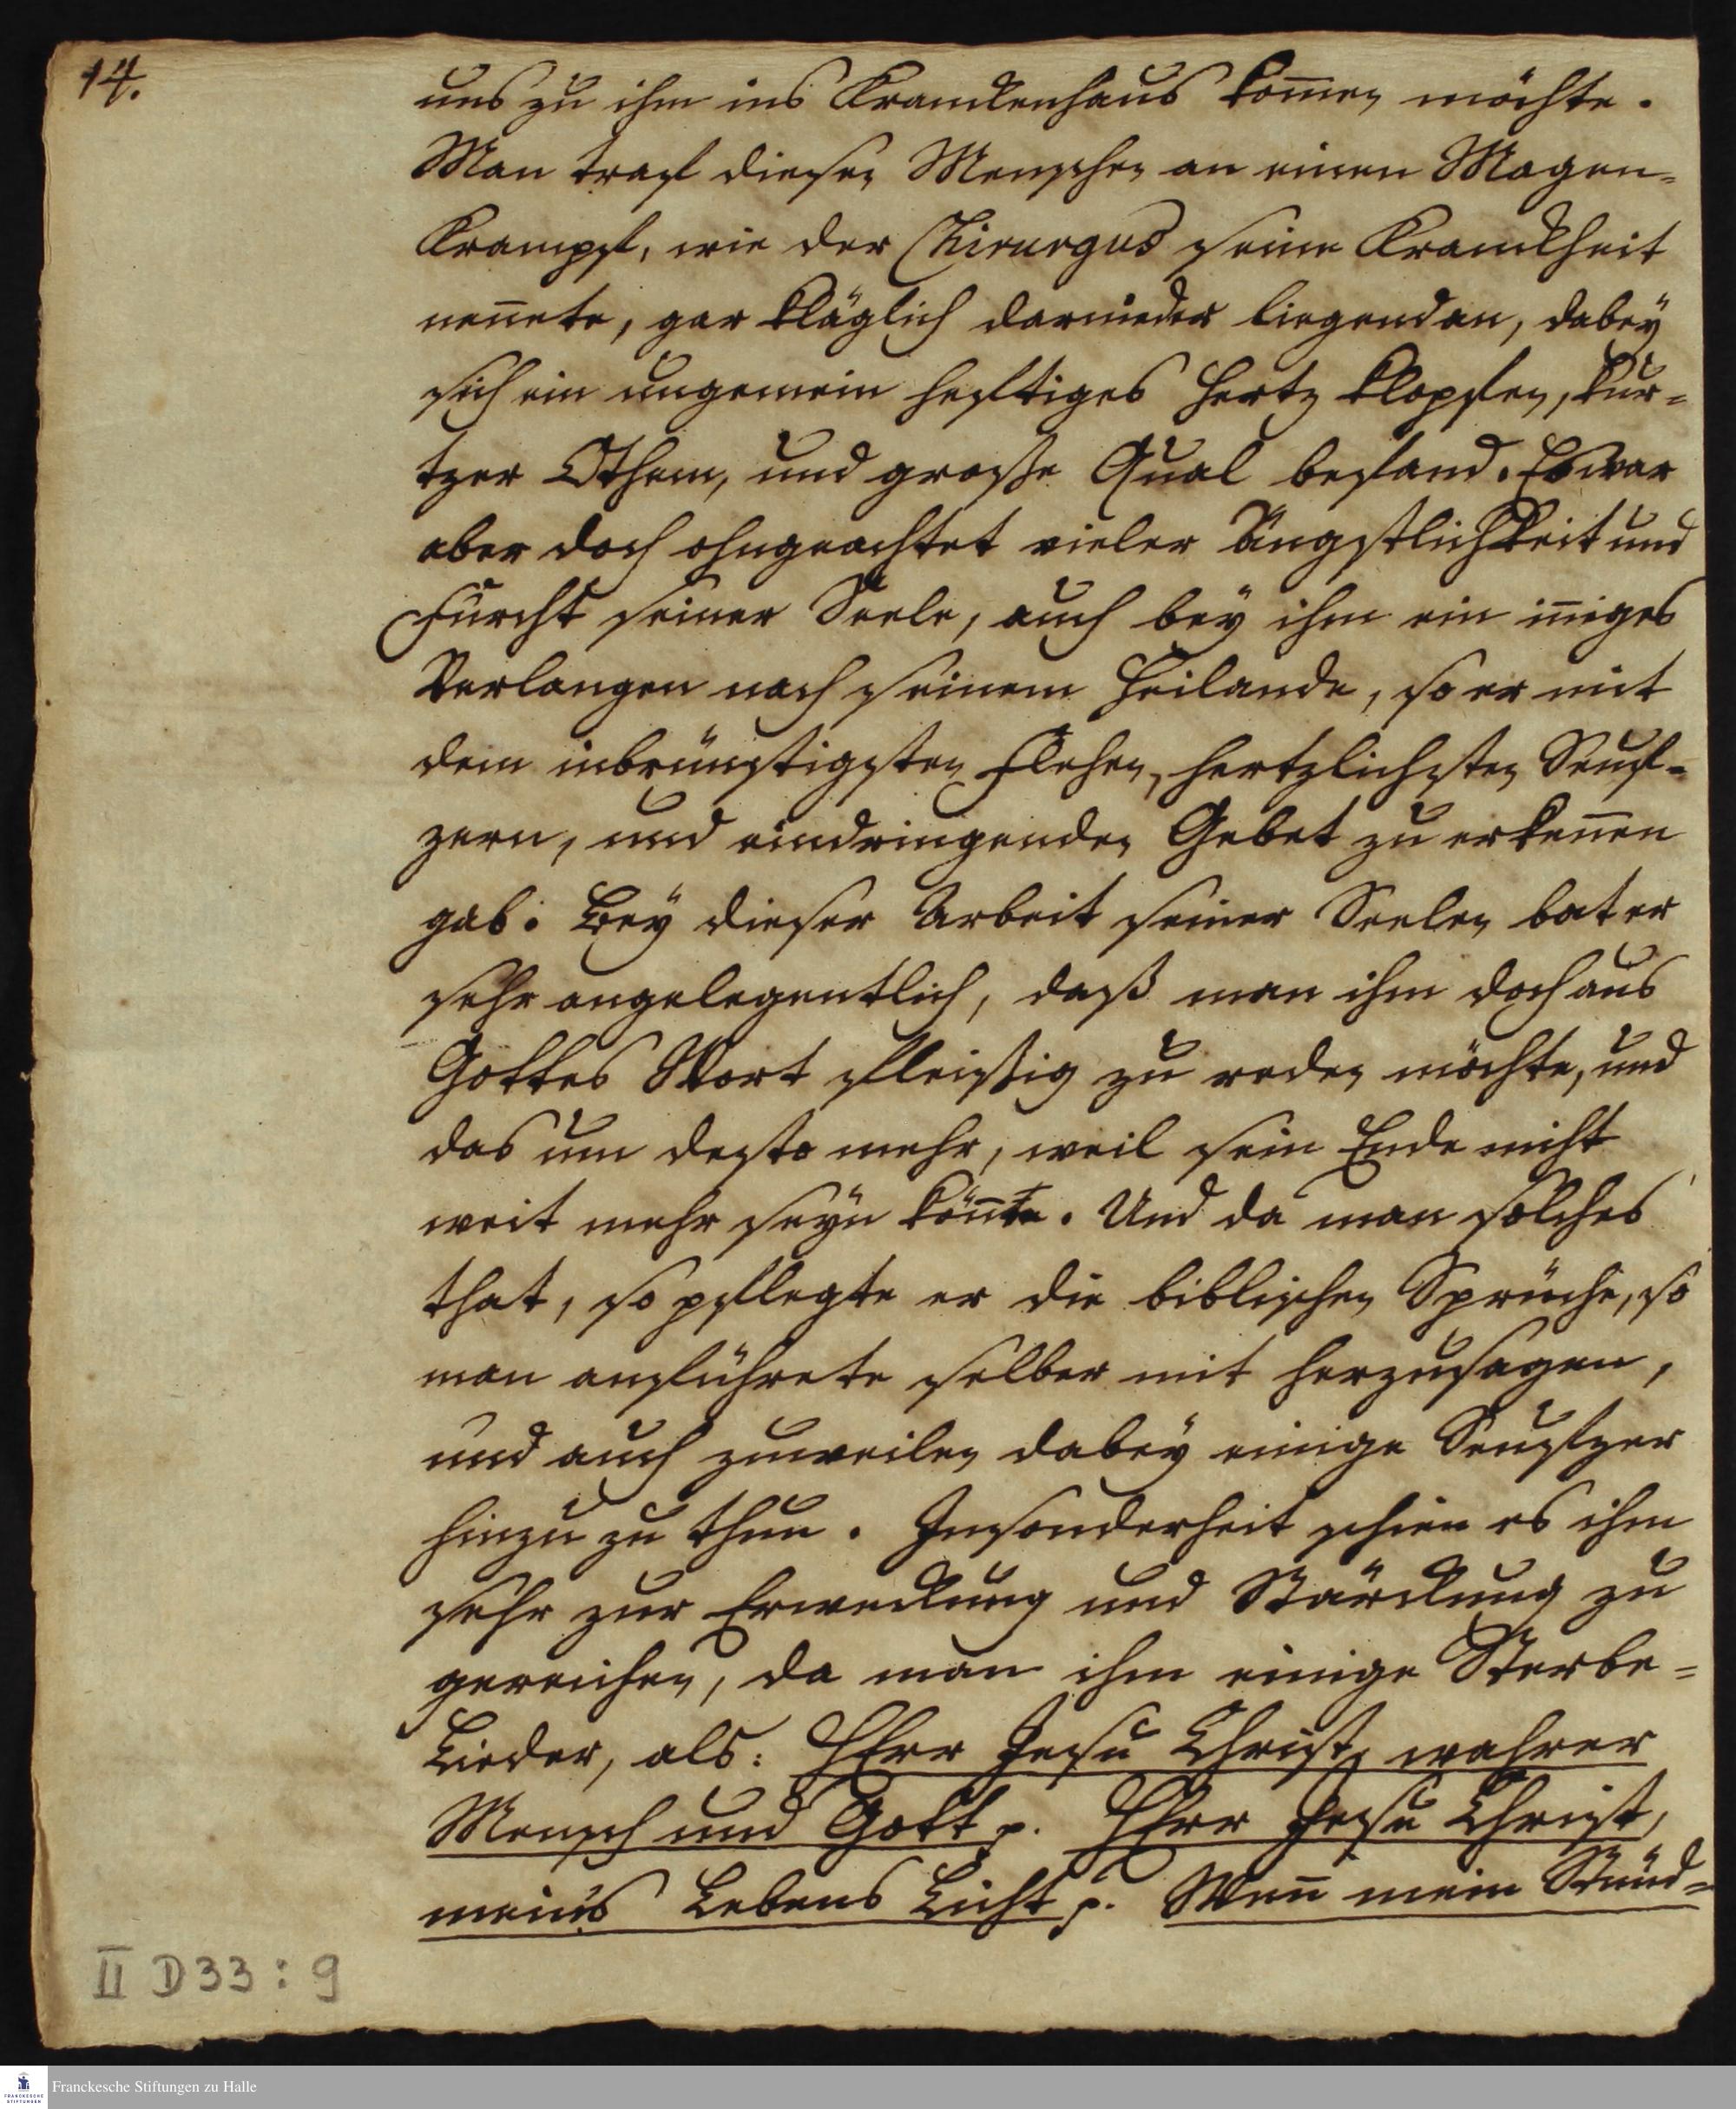 14.
uns zu ihm ins Kranckenhaus kom̅en möchte.
Man traf diesen Menschen an einen Magen=
Krampf, wie der Chirurgus seine Kranckheit
nen̅ete, gar kläglich darnieder liegend an, dabey
sich ein ungemein heftiges Hertz klopfen, kur=
tzer Othem, und große Qual befand. Es war
aber doch ohngeachtet vieler Ängstlichkeit und
Furcht seiner Seele, auch bey ihm ein in̅iges
Verlangen nach seinem Heilande, so er mit
dem inbrünstigsten Flehen, hertzlichsten Seuf=
zern, und eindringenden Gebet zu erken̅en
gab. Bey dieser Arbeit seiner Seelen bat er
sehr angelegentlich, daß man ihm doch aus
Gottes Wort fleißig zu reden möchte, und
das um desto mehr, weil sein Ende nicht
weit mehr seyn kön̅te. Und da man solches
that, so pflegte er die biblischen Sprüche, so
man anführete selber mit herzusagen,
und auch zuweilen dabey einige Seufzer
hinzu zu thun. Insonderheit schien es ihm
sehr zur Erweckung und Stärckung zu
gereichen, da man ihm einige Sterbe=
Lieder, als: HErr Jesu Christ, wahrer
Mensch und Gott p. HErr Jesu Christ,
meins Lebens Licht p. Wen̅ mein Stünd=
II D33 : 9
Franckesche Stiftungen zu Halle
FRANCKESCHE
STIFTUNGEN